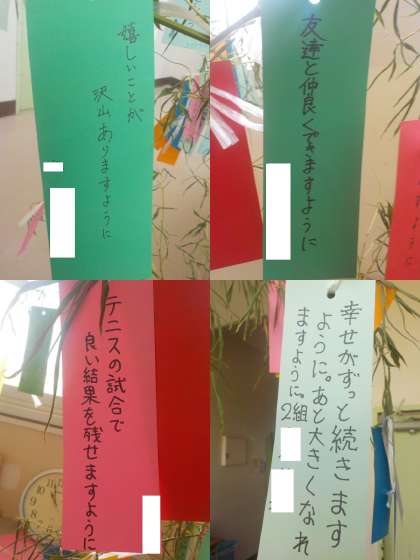 嬉しいことが
沢山ありますように
友達と仲良くできますように
テニスの試合で
良い結果を残せますように
幸せがずっと続きます
ように。あと大きくなれ
ますように。2組